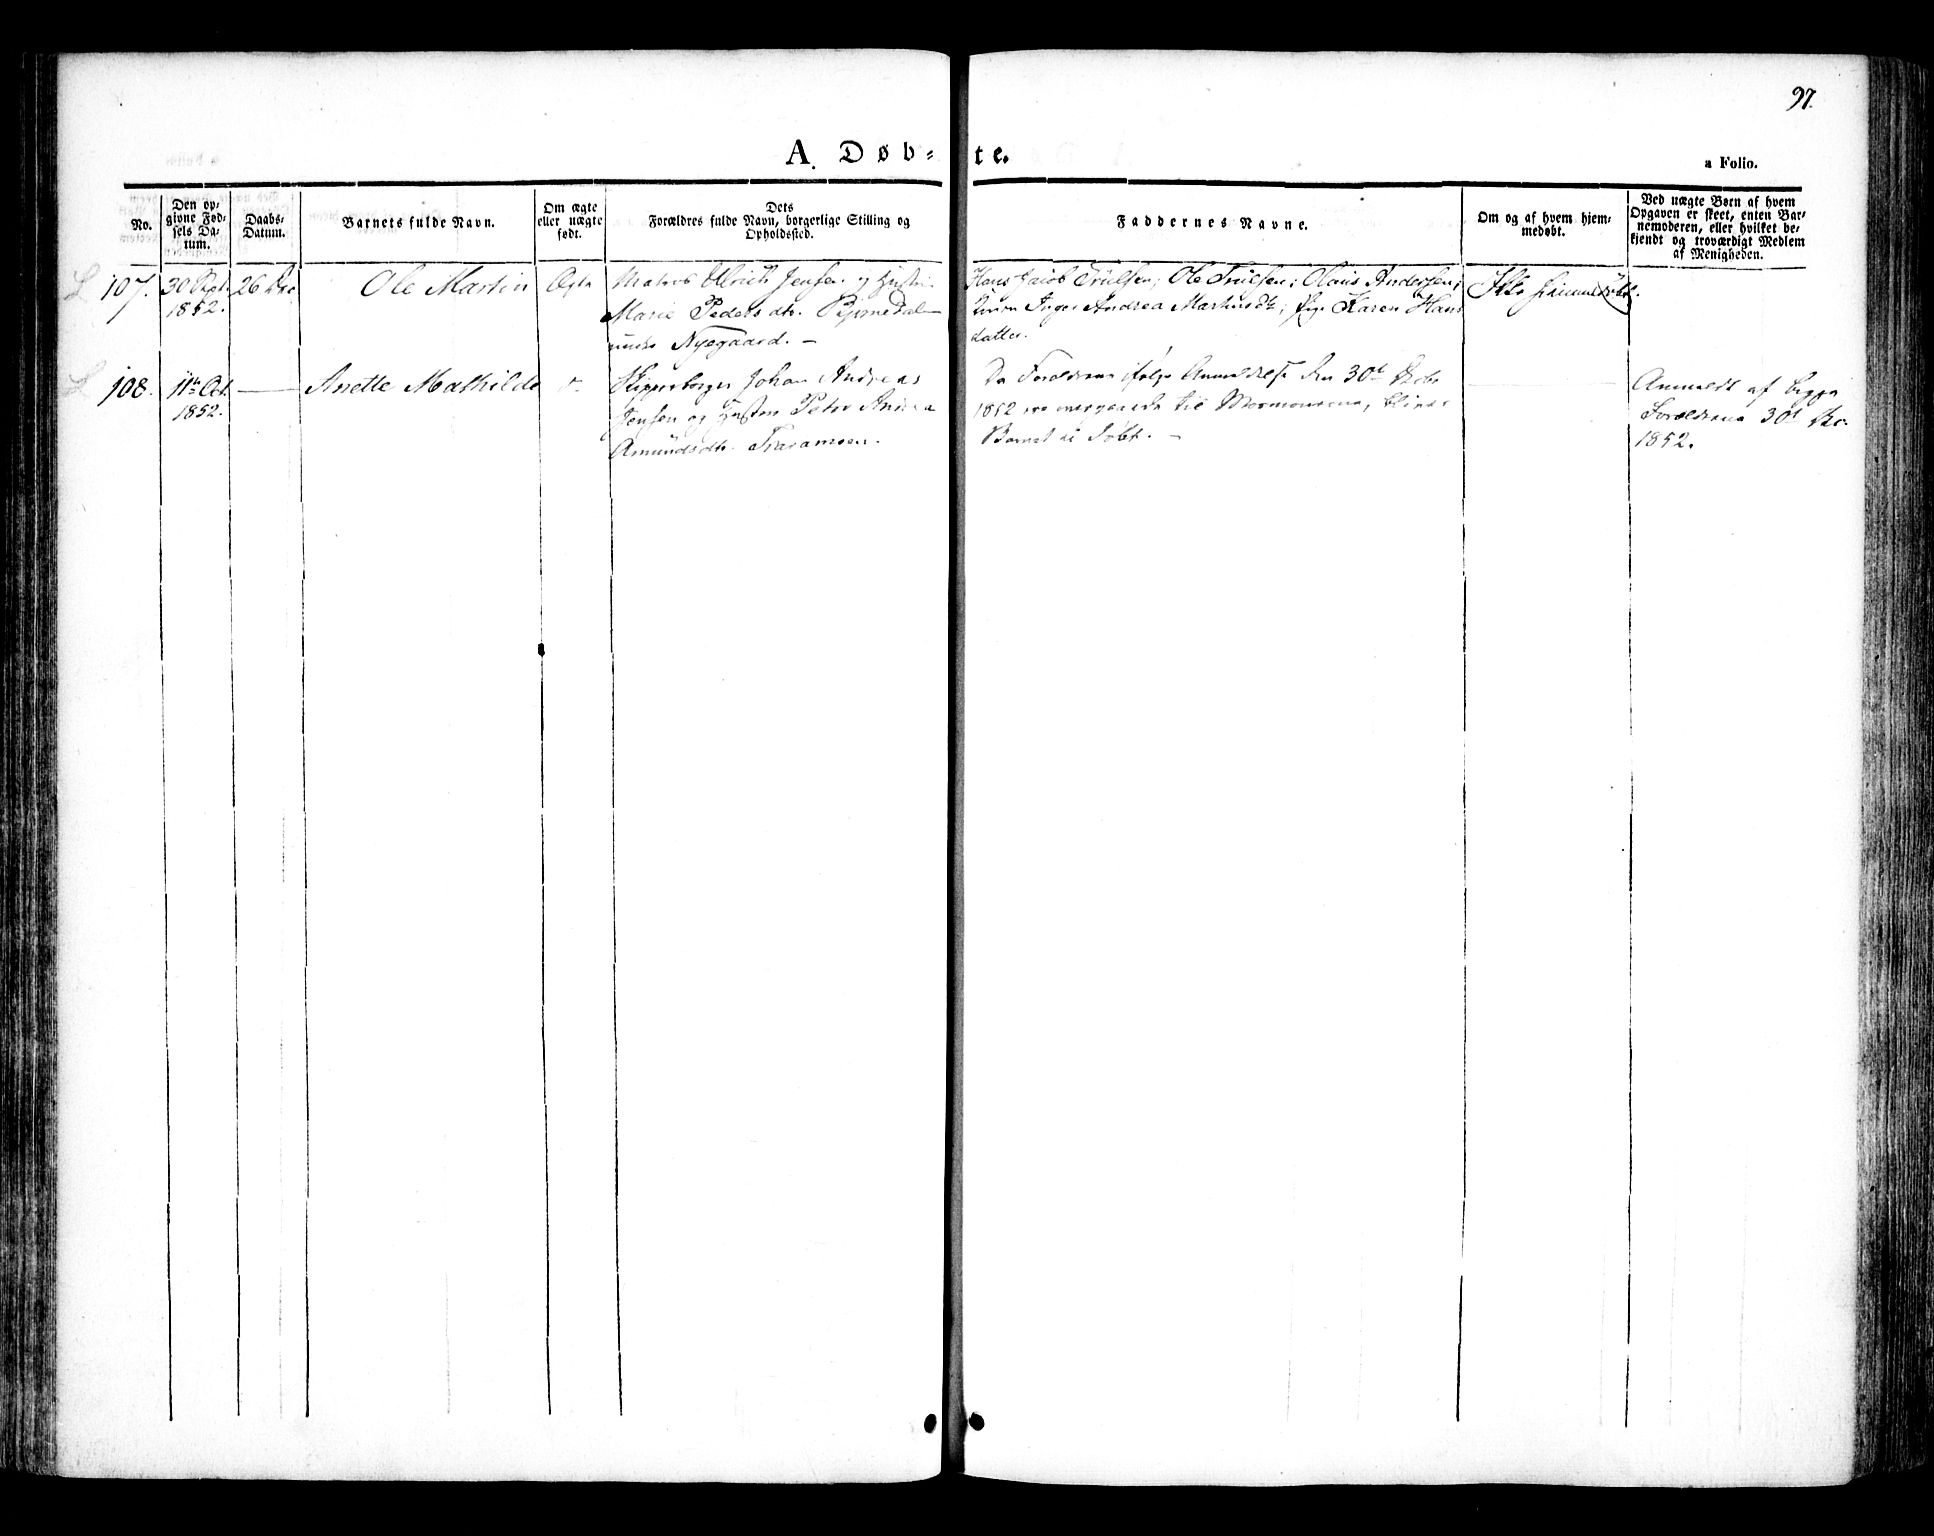 97.
A. Døb-te.
a Folio.
No.
Den op-
givne Fød-
sels Da-
tum.
Daabs-
Datum.
Barnets fulde Navn.
Om ægte
eller uægte
født.
Dets
Forældres fulde Navn, borgerlige Stilling og
Opholdssted.
Faddernes Navne.
Om og af hvem hjem-
medøbt.
Ved uægte Børn af hvem
Opgaven er skeet, enten Bar-
nemoderen, eller hvilket be-
kjendt og troværdigt Medlem
af Menigheden.
107.
30 Sept.
1852.
26 Dec
Ole Martin
Ægte
Matros Ulrich Jensen og Hustru
Marie Pedersdtr.
under Nyegaard. —
Hans Jacob Trülsen; Ole Trülsen; Olaus Andersen;
Inger Andrea Mathisdtr; Pige Karen Hans
datter.
Ikke hjemmedøbt.
108.
11te Oct.
1852.
Anette Mathilde
Skipperborger Johan Andreas
Jensen og Hustru Petra Andrea
Amündsdtr.
Da Forældrene ifølge Anmeldelse den 30te Decbr
1852 ere overgaaede til Mormonerne, bliver
Barnet ei døbt. —
Anmeldt af begge
Forældrene 30t Dec.
1852.